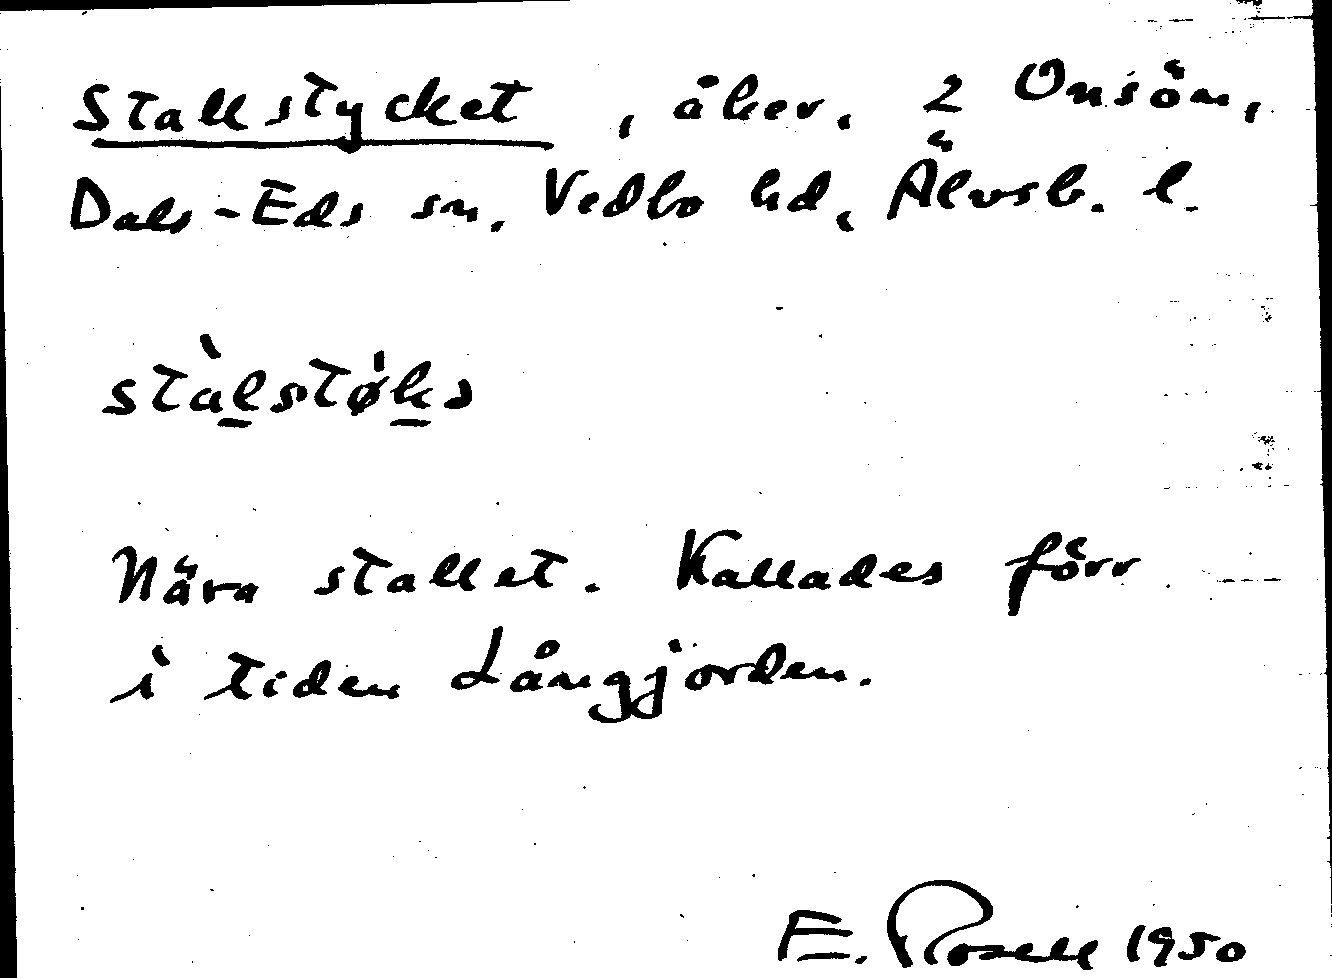 Stallstycket, åker, 2 Onsön,
Dals-Eds sn, Vedbo hd, Älvsb. l.
stàl̲støk̲ə
Nära stallet. Kallades förr
i tiden Långjorden.
E. Rosell 1950